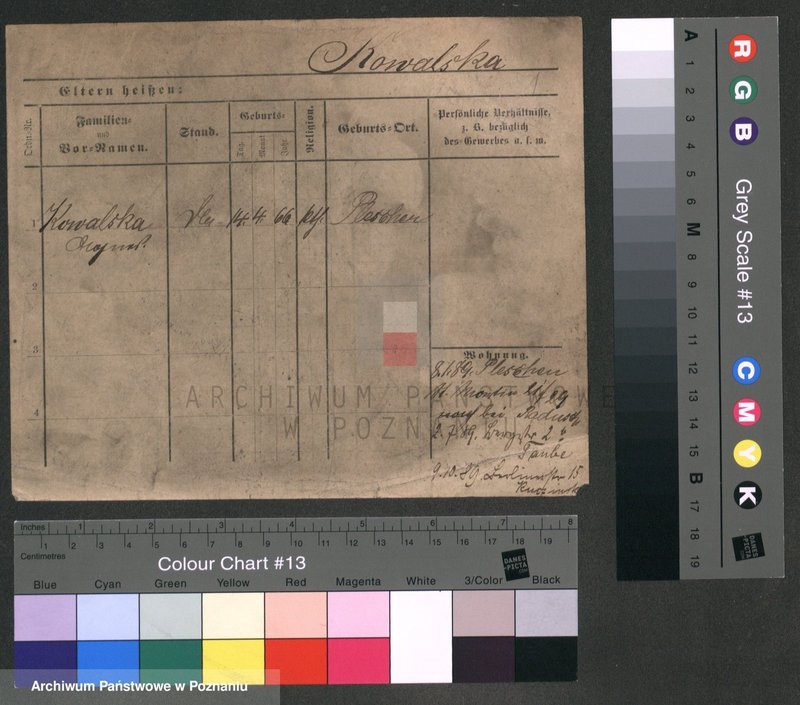 Kowalska
1
Eltern heißen:
Ordn.-Nr.
Familien-
und
Vor-Namen.
Stand.
Geburts-
Tag.
Monat
Jahr
Religion.
Geburts-Ort.
Persönliche Verhältnisse,
z. B. bezüglich
des Gewerbes u. s. w.
1
Kowalska
Agnes.
14. 4. 66
kth.
Pleschen
2
3
4
Wohnung.
8.1.89. Pleschen
St. Martin
bei
2.7.89. Bergstr 2
Taube
9.10.89. Berlinerstr 15
ARCHIWUM PAŃSTWOWE
W POZNANIU
Inches 1 2 3 4 5 6 7 8
Centimetres 1 2 3 4 5 6 7 8 9 10 11 12 13 14 15 16 17 18 19
Colour Chart #13
DANES
-PICTA
.COM
Blue Cyan Green Yellow Red Magenta White 3/Color Black
Archiwum Państwowe w Poznaniu
A 1 2 3 4 5 6 M 8 9 10 11 12 13 14 15 B 17 18 19
R G B
Grey Scale #13
C M Y K
DANES
-PICTA
.COM